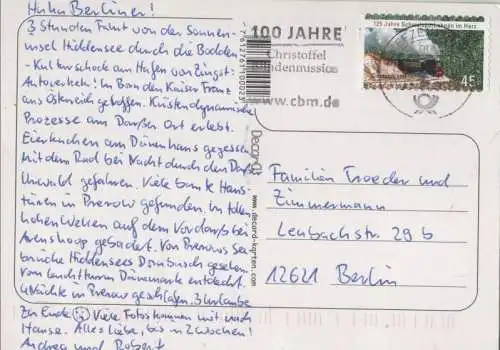 Huhu Berliner!
3 Stunden Fahrt von der Sonnen-
insel Hiddensee durch die Bodden
- Kulturschock am Hafen von Zingst:
Autoverkehr! In Born den Kaiser Franz
aus Österreich getroffen. Küstendynamische
Prozesse am Darßer Ort erlebt.
Eierkuchen am Dünenhaus gegessen
Mit dem Rad bei Nacht durch den Darß
Urwald gefahren. Viele bunte Haus-
türen in Prerow gefunden. In tollen
hohen Wellen auf dem Vordarß bei
Ahrenshoop gebadet. Von Prerows See-
brücke Hiddensees Dornbusch gesehen.
Vom Leuchtturm Dänemark entdeckt.
4 Nächte in Prerow geschlafen. 3 Urlaube
zu Ende Viele Fotos kommen mit nach
Hause. Alles Liebe, bis in 2 Wochen!
Andrea und Robert
100 JAHRE
Christoffel
Blindenmission
www.cbm.de
125 Jahre Schmalspurbahnen im Harz
45
Decor
www.decord-karten.com
Familien Troeder und
Zimmermann
Lenbachstr. 29 b
12621 Berlin